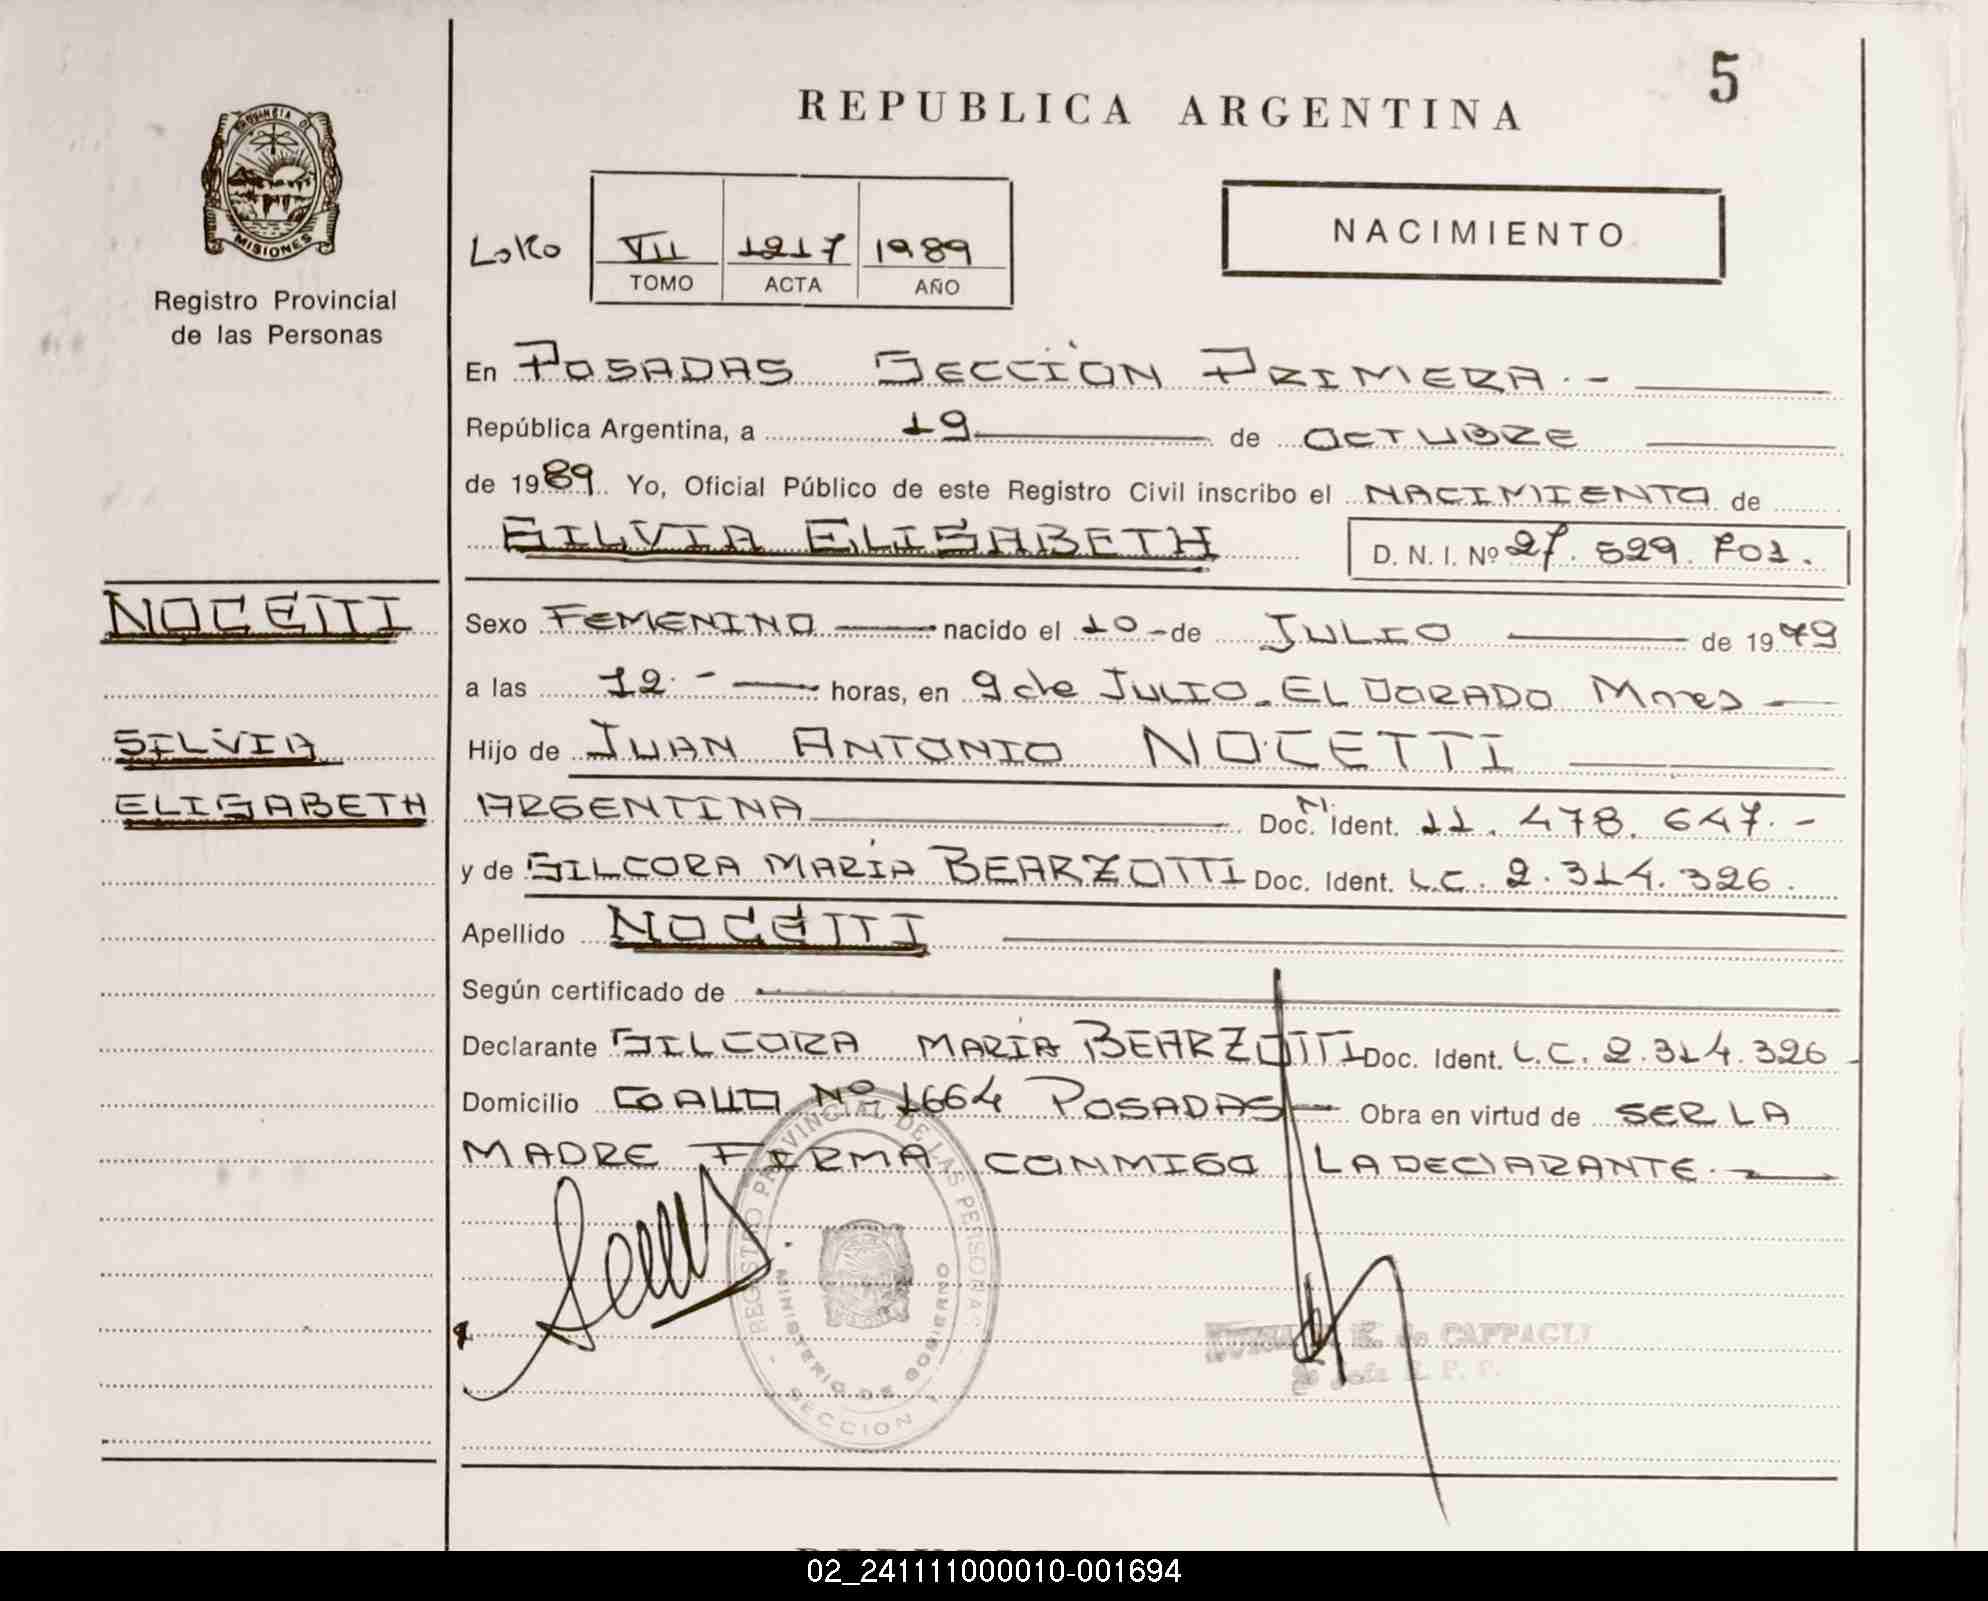 5
REPUBLICA ARGENTINA
PROVINCIA DE
MISIONES
Registro Provincial
de las Personas
VII 1217 1989
TOMO ACTA AÑO
NACIMIENTO
En POSADAS SECCION PRIMERA.-
República Argentina, a 19 de OCTUBRE
de 1989. Yo, Oficial Público de este Registro Civil inscribo el NACIMIENTO de
SILVIA ELISABETH D. N. I. Nº 27.529.701.
NOCETTI
SILVIA
ELISABETH
Sexo FEMENINO nacido el 10 - de JULIO de 1979
a las 12.- horas, en 9 de JULIO - ELDORADO Mnes
Hijo de JUAN ANTONIO NOCETTI
ARGENTINA Doc. Ident. 11.478.647.-
y de SILCORA MARÍA BEARZOTTI Doc. Ident. L.C. 2.314.326.
Apellido NOCETTI
Según certificado de
Declarante SILCORA MARÍA BEARZOTTI Doc. Ident. L.C. 2.314.326
Domicilio Nº 1664 POSADAS Obra en virtud de SER LA
MADRE FIRMA CONMIGO LA DECLARANTE.
REGISTRO PROVINCIAL DE LAS PERSONAS
MINISTERIO DE GOBIERNO
SECCION 1
de CAFFAGLI
02_241111000010-001694